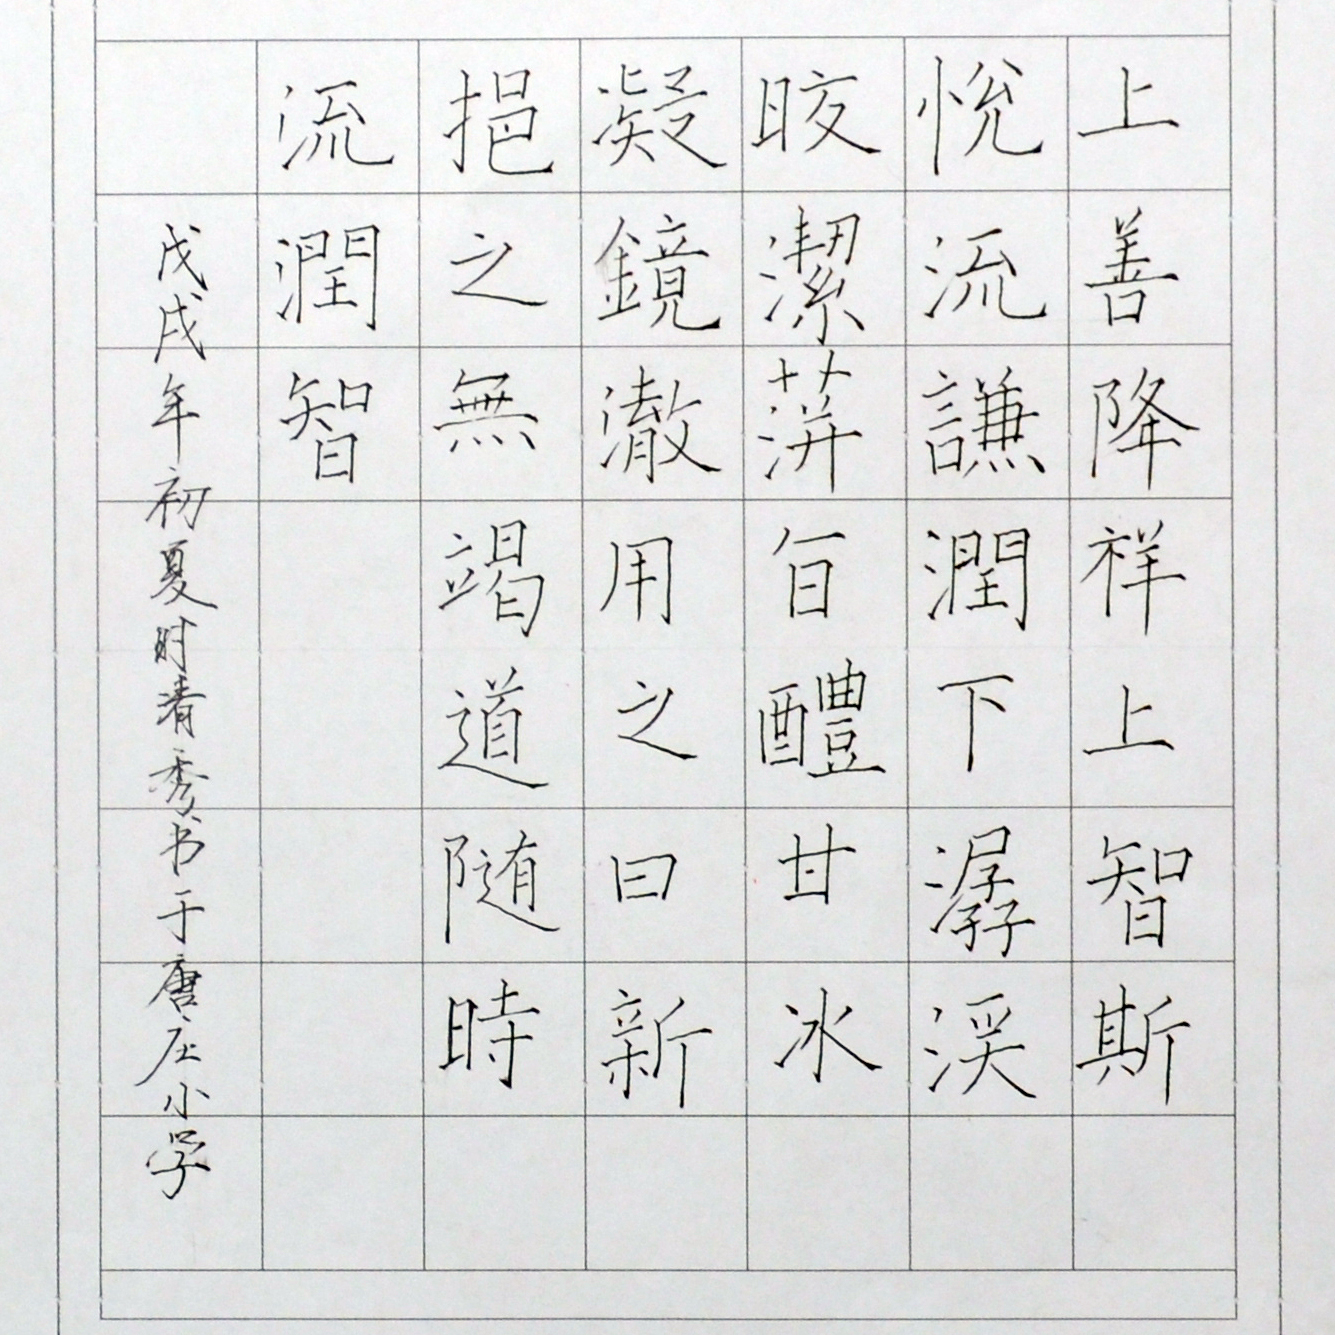 上善降祥上智斯
悦流謙潤下潺湲
晈潔萍旨醴甘冰
凝鏡澈用之日新
挹之無竭道随時
流潤智
戊戌年初夏时清秀书于唐庄小学